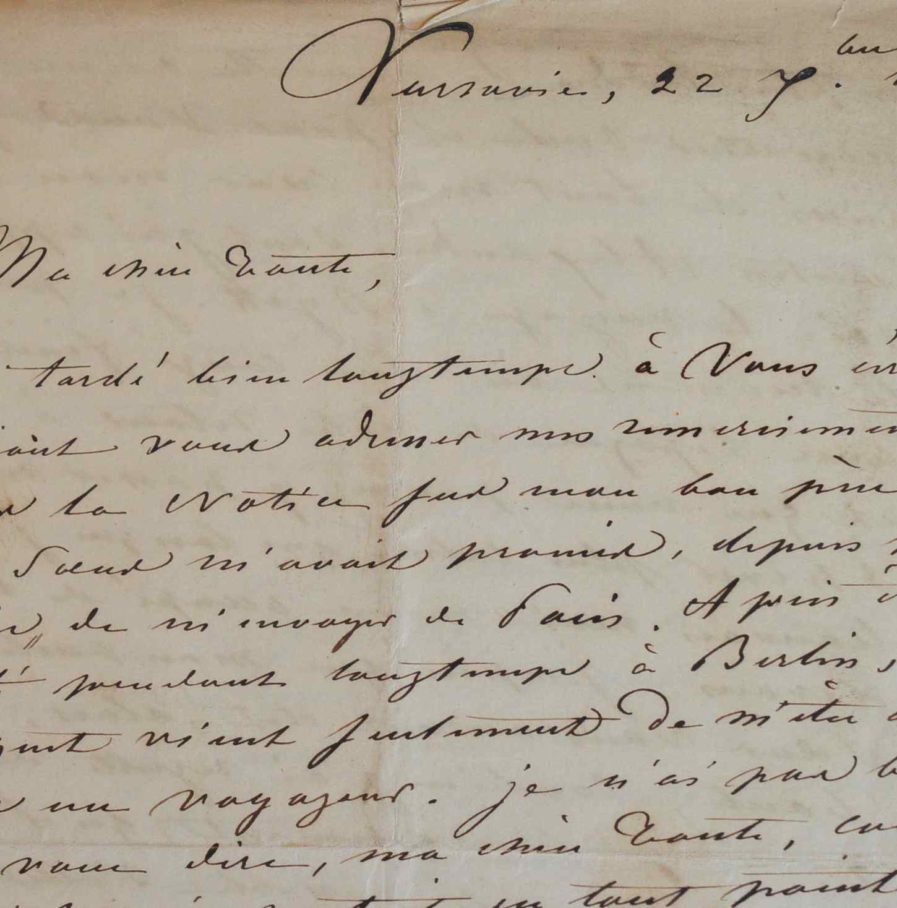 Varsovie, 22 7.bre
Ma chère Tante,
tardé bien longtemps à Vous
vous adresser mes remerciemen
la Notice sur mon bon père
Sœur m'avait promis, depuis
de m'envoyer de Paris. Après
pendant longtemps à Berlin,
vient seulement de m'être
un voyageur. je n'ai pas
vous dire, ma chère Tante,
en tout point